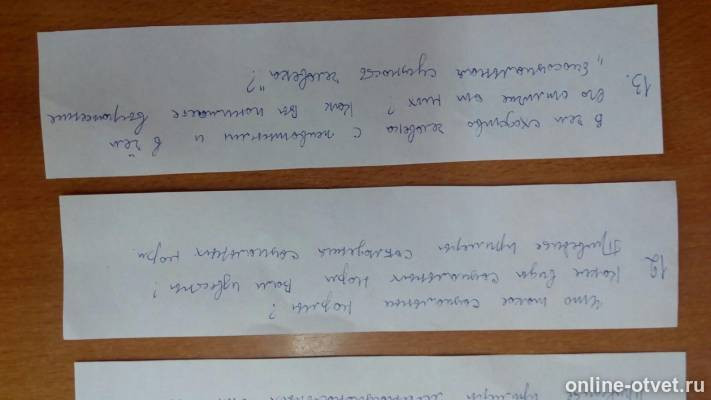 12. Что такое социальные нормы?
Какие виды социальных норм Вам известны?
Приведите примеры соблюдения социальных норм.
13. В чем сходство человека с животными и в чём
его отличие от них? Как Вы понимаете выражение
"биосоциальная сущность человека"?
online-otvet.ru